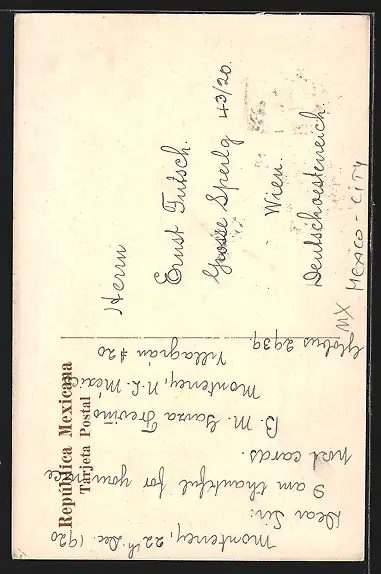 República Mexicana
Tarjeta Postal
Monterrey, 22th Dec. 1920
Dear Sir:
I am thankful for your nice
post cards.
B. M. Garza Treviño
Monterrey, N. L. Mexi
Villagrán #20
Globus 2939.
Herrn
Ernst Futsch.
Grosse Sperlg 43/20.
Wien.
Deutschoesterreich.
MX
MEXICO-CITY